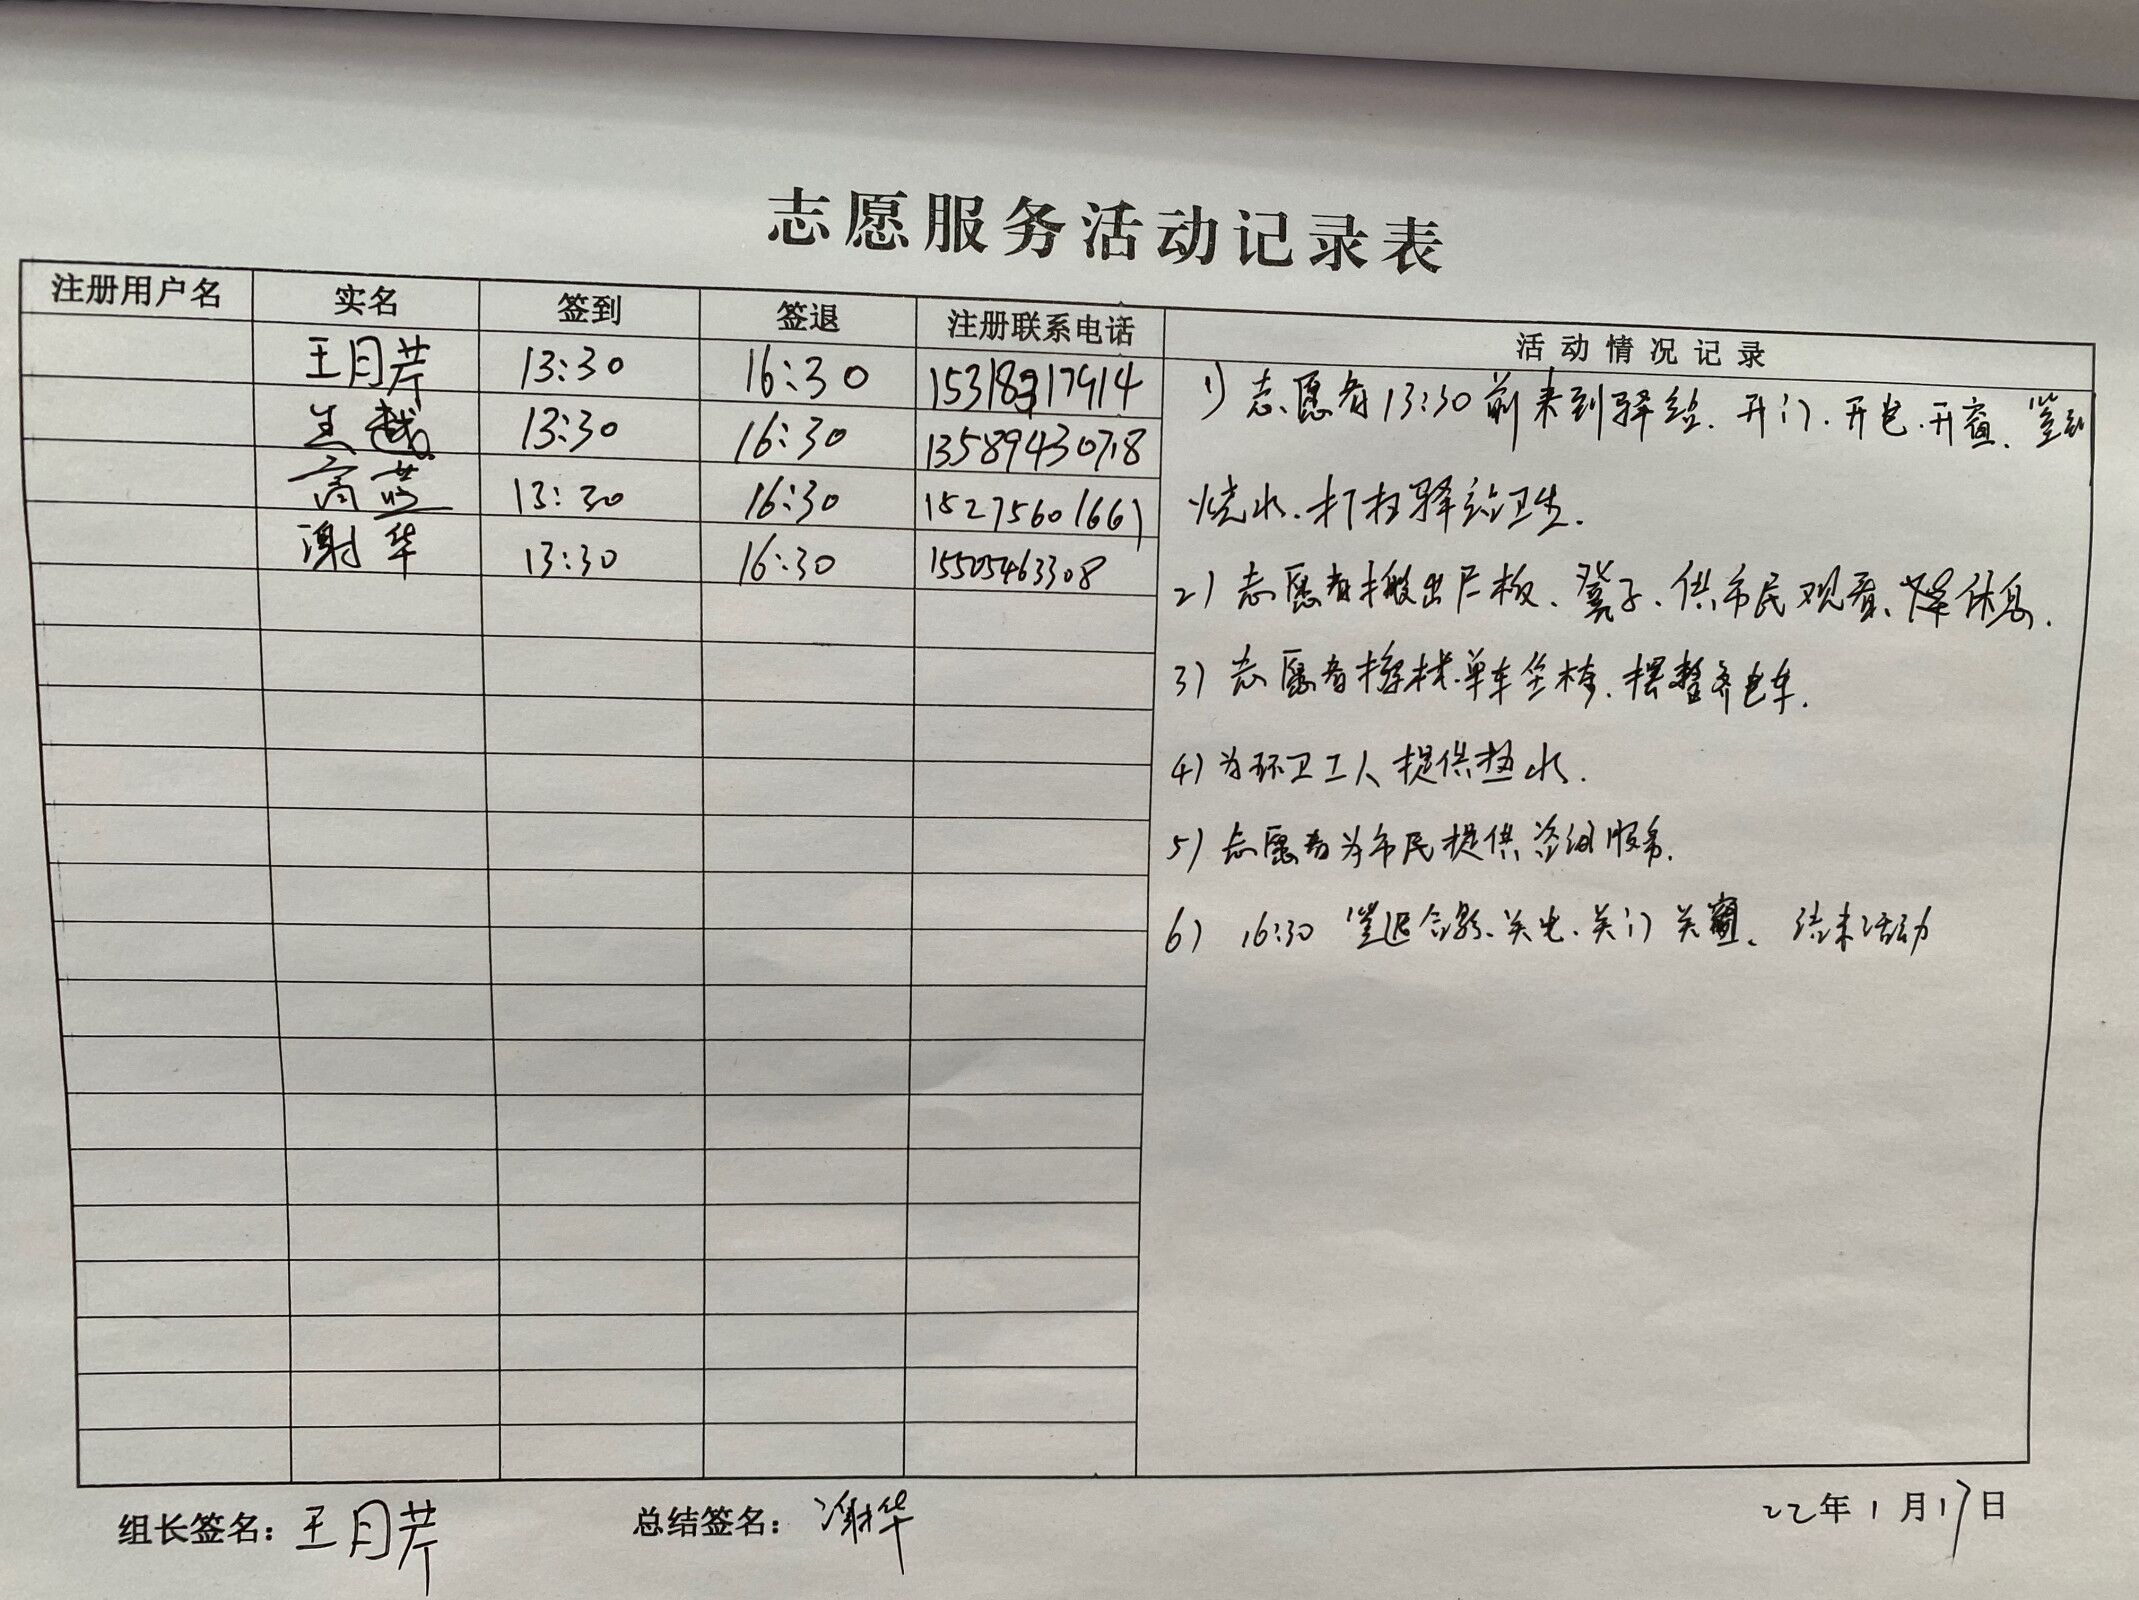 志愿服务活动记录表
注册用户名 实名 签到 签退 注册联系电话 活动情况记录
王月芹 13:30 16:30
生越 13:30 16:30 13589430718
高燕 13:30 16:30 15275601661
谢华 13:30 16:30 15505463308
1) 志愿者13:30前来到驿站、开门、开电、开窗、签到
烧水、打扫驿站卫生.
2) 志愿者搬出展板、凳子、供市民观看、休息.
3) 志愿者擦拭单车坐椅、摆整齐电车.
4) 为环卫工人提供热水.
5) 志愿者为市民提供咨询服务.
6) 16:30 签退合影、关电、关门关窗、结束活动
组长签名: 王月芹 总结签名: 谢华 22年1月17日